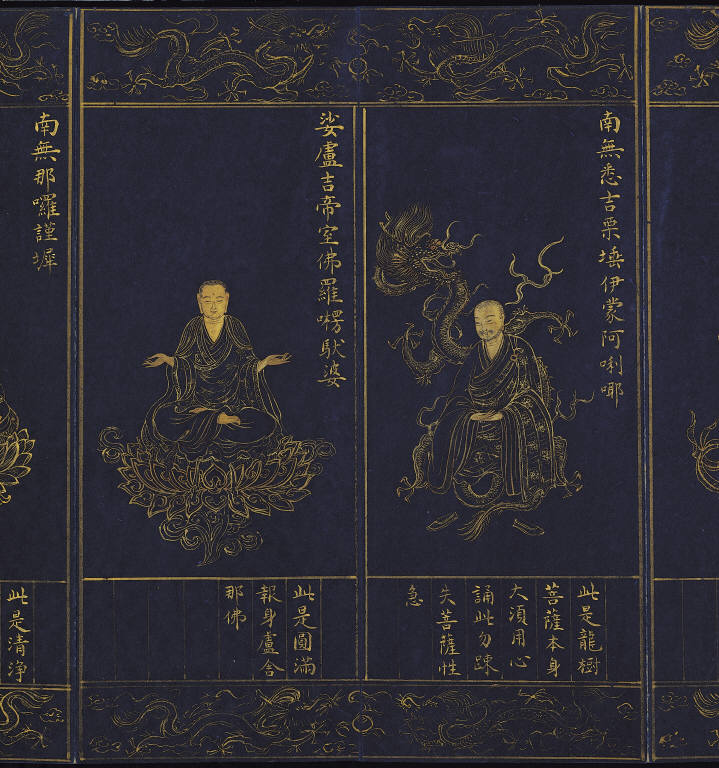 南無悉吉栗埵伊蒙阿唎㖿
此是龍樹
菩薩本身
大須用心
誦此勿踈
失菩薩性
急
娑盧吉帝室佛羅楞馱婆
此是圓滿
報身盧舍
那佛
南無那囉謹墀
此是清淨